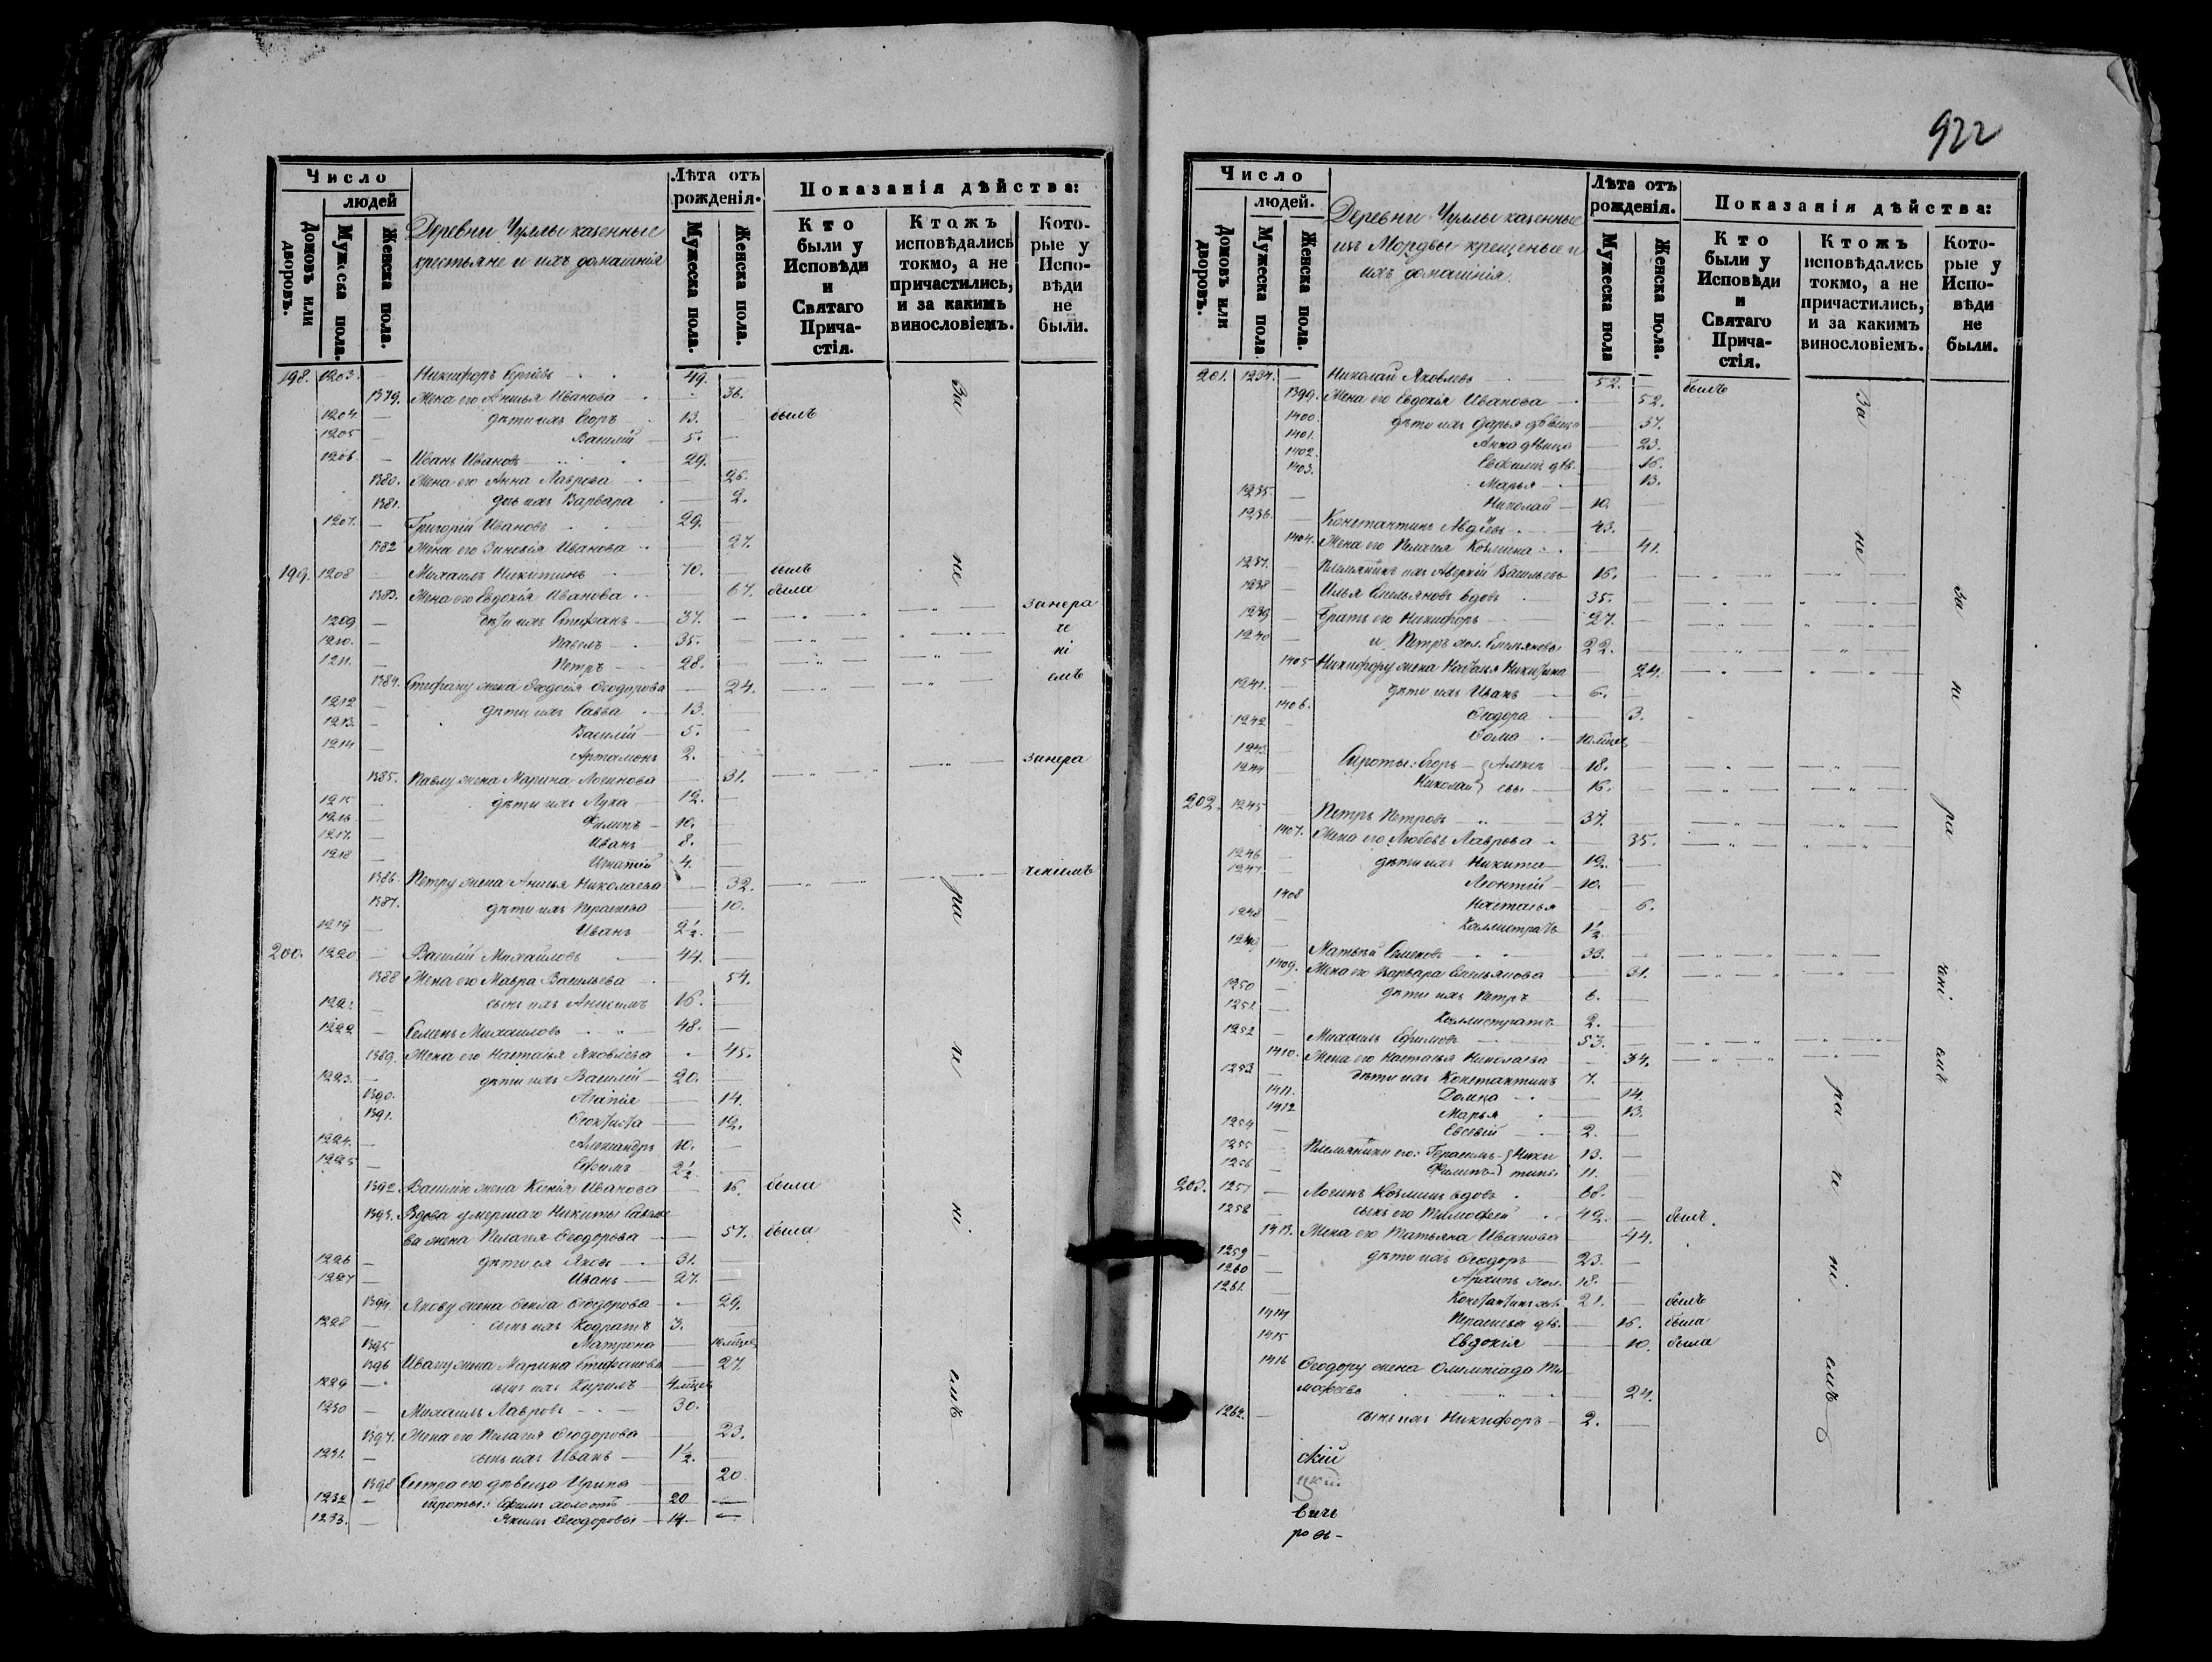 922
Число
людей
Домовъ или дворовъ.
Мужеска пола.
Женска пола.
Деревни Чуллы казенные
крестьяне и ихъ домашнія
Лѣта отъ рожденія.
Мужеска пола.
Женска пола.
Показанія дѣйства:
Кто были у Исповѣди и Святаго Причастія.
Ктожъ исповѣдались токмо, а не причастились, и за какимъ винословіемъ.
Которые у Исповѣди не были.
198. 1203. — Никифоръ Сергѣевъ 49.
1379. Жена его Анисья Иванова 36.
1204 — дѣти ихъ Егоръ 13. былъ
1205 — Василій 5.
1206 — Иванъ Ивановъ 29.
1380. Жена его Анна Лаврова 26.
1381. дочь ихъ Варвара 2.
1207. — Григорій Ивановъ 29.
1382 Жена его Зиновія Иванова 27.
199. 1208 Михаилъ Никитинъ 70. былъ
1383. Жена его Евдокія Иванова 67. была
1209 — дѣти ихъ Стефанъ 37. занера
1210. — Павелъ 35. че
1211. — Петръ 28. ні
1384. Стефану жена Ѳеодосія Ѳеодорова 24. емъ
1212 — дѣти ихъ Савва 13.
1213. — Василій 5.
1214 — Артамонъ 2.
1385. Павлу жена Марина Логинова 31. занера
1215 — дѣти ихъ Лука 12.
1216. — Филипъ 10.
1217. — Иванъ 8.
1218 — Игнатій 4.
1386. Петру жена Анисья Николаева 32. ченіемъ
1387. дѣти ихъ Параскева 10.
1219 — Иванъ 2½.
200. 1220 Василій Михайловъ 44.
1388 Жена его Мавра Васильева 54.
1221 — сынъ ихъ Анисимъ 16.
1222 — Семенъ Михаиловъ 48.
1389. Жена его Настасья Яковлева 45.
1223. — дѣти ихъ Василій 20.
1390. Агапія 14.
1391. Ѳеоктиста 12.
1224. — Александръ 10.
1225 — Ефимъ 2½
1392 Василію жена Ксенія Иванова 16. была
1393. Вдова умершаго Никиты Савелье
ва жена Пелагея Ѳеодорова 57. была
1226 — дѣти ея Яковъ 31.
1227 — Иванъ 27.
1394. Якову жена Ѳекла Ѳеодорова 29.
1228 — сынъ ихъ Кодратъ 3.
1395 Матрона
1396 Ивану жена Марина Стефанова 27.
1229 — сынъ ихъ Кирилъ 4 мѣсяц
1230 — Михаилъ Лавровъ 30.
1397. Жена его Пелагія Ѳеодорова 23.
1231. — сынъ ихъ Иванъ 1½.
1398 Сестра его дѣвица Ирина 20
1232 — сироты: Ефимъ холостъ 20
1233. — Якимъ Ѳеодоровы 14.
За не ра че ні емъ
Число
людей.
Домовъ или дворовъ.
Мужеска пола
Женска пола.
Деревни Чуллы казенные
изъ Мордвы крещеные и
ихъ домашнія
Лѣта отъ рожденія.
Мужеска пола
Женска пола.
Показанія дѣйства:
Кто были у Исповѣди и Святаго Причастія.
Ктожъ исповѣдались токмо, а не причастились, и за какимъ винословіемъ.
Которые у Исповѣди не были.
201. 1234. — Николай Яковлевъ 52. былъ
1399. Жена его Евдокія Иванова 52.
1400. дѣти ихъ Дарья дѣвица 37.
1401. Анна дѣвица 23.
1402. Евфимія дѣв. 16.
1403. Марья 13.
1235. — Николай 10.
1236. — Константинъ Авдѣевъ 43.
1404. Жена его Пелагея Козмина 41.
1237. — Племянникъ ихъ Аверкій Васильевъ 16.
1238 — Илья Емельяновъ вдовъ 35.
1239 — Братъ его Никифоръ 27.
1240 — и Петръ хол. Емельяновы 22.
1405 Никифору жена Наталья Никитина 24.
1241. — дѣти ихъ Иванъ 6.
1406. Ѳеодора 3.
1242 — Ѳома 10 мѣсяц
1243. Сироты: Егоръ } Алексѣ 18.
1244 Николай } евы 16.
202. 1245 Петръ Петровъ 37.
1407. Жена его Любовь Лаврова 35.
1246 — дѣти ихъ Никита 12.
1247. — Леонтій 10.
1408 Настасья 6.
1248 — Каллистратъ 1½
1249 — Матвѣй Семеновъ 33.
1409. Жена его Варвара Емельянова 31.
1250 — дѣти ихъ Петръ 6.
1251 — Каллистратъ 2.
1252 — Михаилъ Ефимовъ 53.
1410. Жена его Настасья Николаева 34.
1253 — дѣти ихъ Константинъ 7.
1411. Домна 14.
1412 Марья 13.
1254 — Евсевій 2.
1255 — Племянники его: Герасимъ } Ники 13.
1256 — Филипъ } тины 11.
203. 1257 — Логинъ Козминъ вдовъ 68.
1258 сынъ его Тимофей 42. былъ.
1413. Жена его Татьяна Иванова 44.
1259 — дѣти ихъ Ѳеодоръ 23.
1260 — Архипъ хол. 18.
1261. — Константинъ хол. 21. былъ
1414 Параскева дѣв. 16. была
1415 Евдокія 10. была
1416 Ѳеодору жена Олимпіада Ти
мофеева 24.
1262. — сынъ ихъ Никифоръ 2.
За не ра че ні емъ
за не ра чені емъ
скій
цкій
вичь
ровъ-